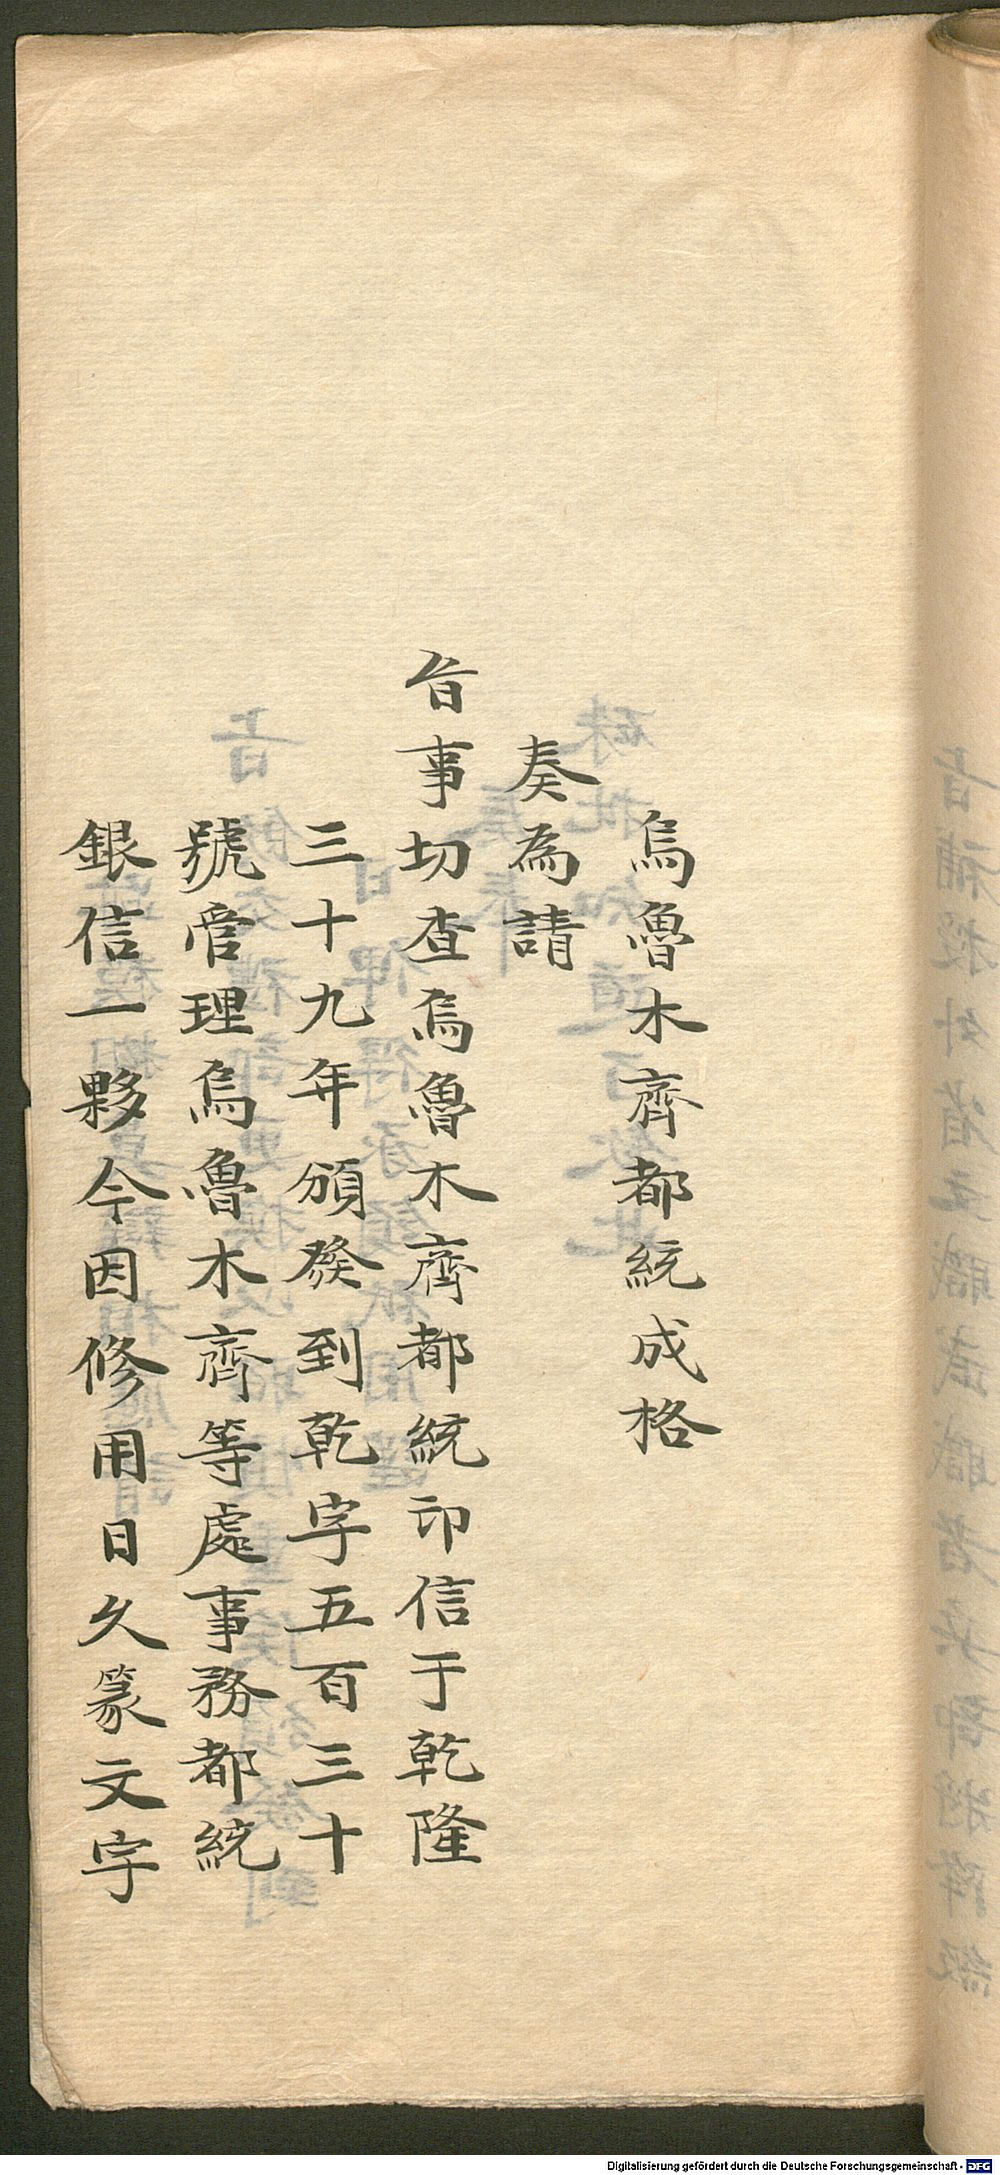 烏魯木齊都統成格
奏為請
旨事切查烏魯木齊都統印信于乾隆
三十九年頒發到乾字五百三十
號管理烏魯木齊等處事務都統
銀信一夥今因修用日久篆文字
Digitalisierung gefördert durch die Deutsche Forschungsgemeinschaft - DFG